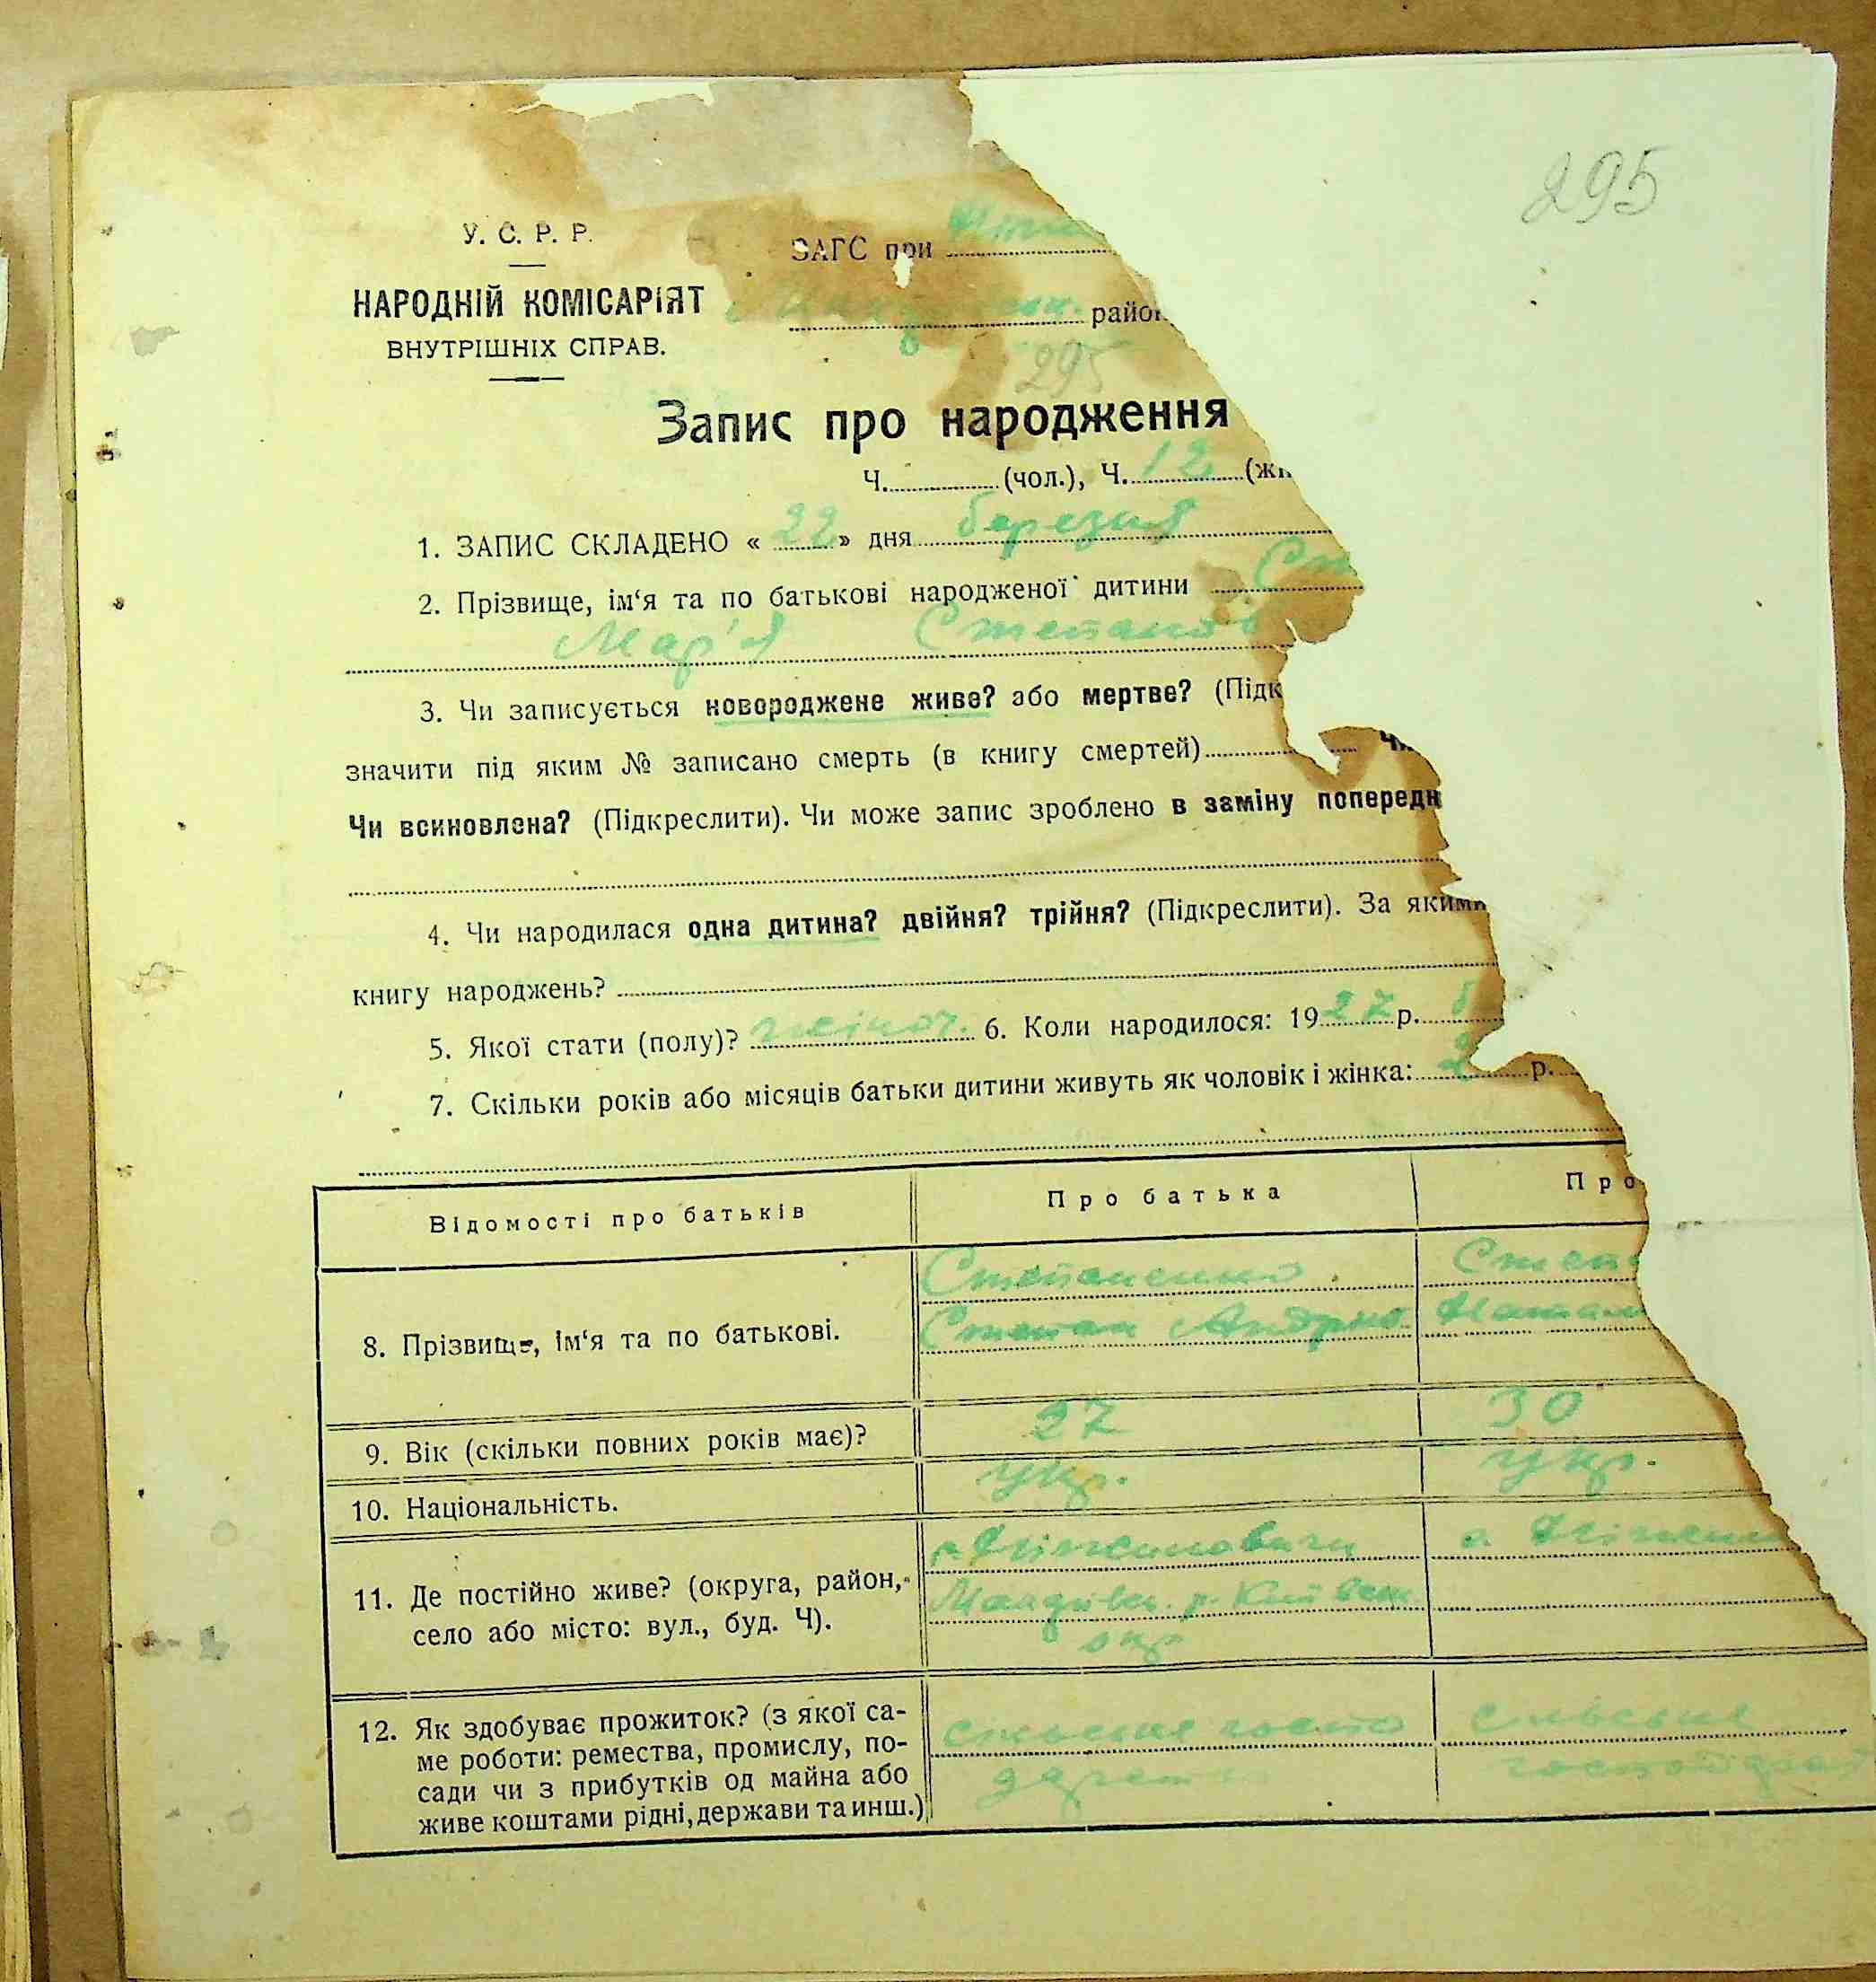 295
У. С. Р. Р.
ЗАГС при
НАРОДНІЙ КОМІСАРІЯТ
район
ВНУТРІШНІХ СПРАВ.
295
Запис про народження
Ч. (чол.), Ч. 12 (жі
1. ЗАПИС СКЛАДЕНО « 22 » дня березня
2. Прізвище, ім‘я та по батькові народженої дитини Ст
Мар'я Степанов
3. Чи записується новороджене живе? або мертве? (Підк
значити під яким № записано смерть (в книгу смертей) Чи
Чи всиновлена? (Підкреслити). Чи може запис зроблено в заміну попередн
4. Чи народилася одна дитина? двійня? трійня? (Підкреслити). За якими
книгу народжень?
5. Якої стати (полу)? жіноч. 6. Коли народилося: 1927 р. б
7. Скільки років або місяців батьки дитини живуть як чоловік і жінка: 2 р.
Відомості про батьків Про батька Про
Степаненко Степ
8. Прізвище, ім‘я та по батькові. Степан Андріїв Натал
9. Вік (скільки повних років має)? 27 30
10. Національність. укр. укр.
11. Де постійно живе? (округа, район, село або місто: вул., буд. Ч).
р. Київськ
окр
12. Як здобуває прожиток? (з якої са-
ме роботи: ремества, промислу, по-
сади чи з прибутків од майна або
живе коштами рідні, держави та инш.)
сільське госпо
сільське